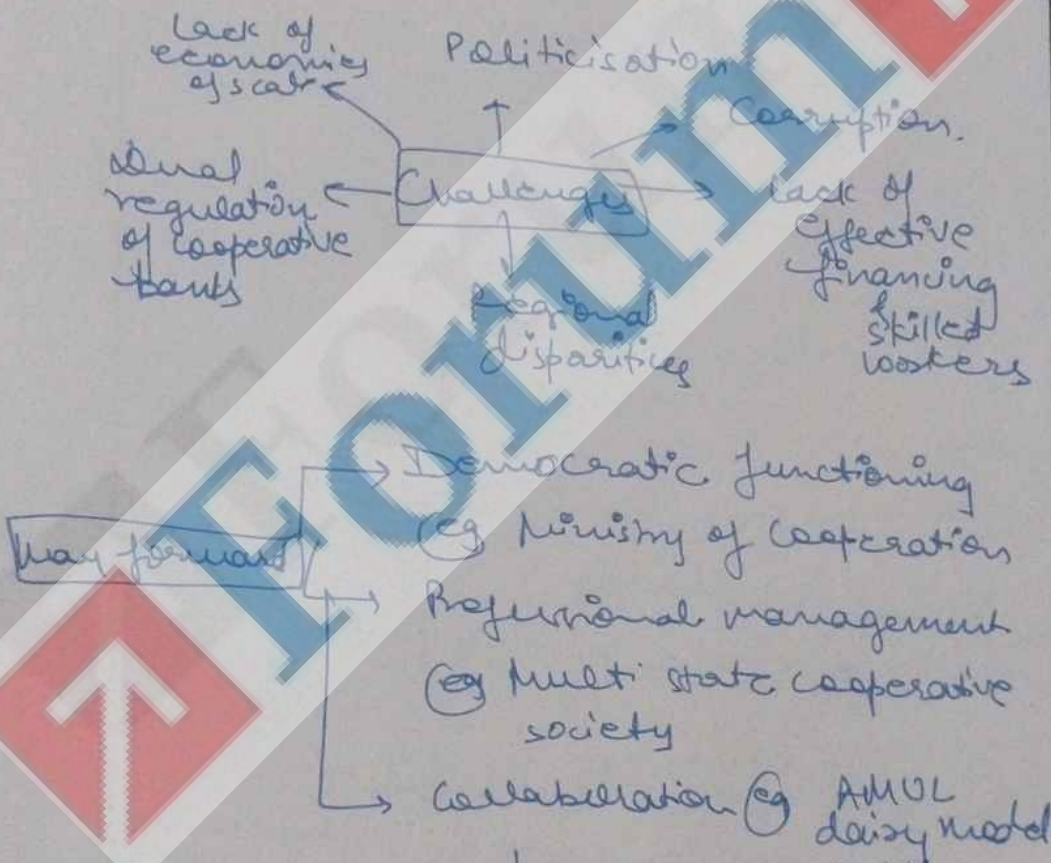 Lack of
economies
of scale
Politicisation
Corruption.
Dual
regulation
of cooperative
banks
Challenges
Lack of
effective
financing
&
skilled
workers
Regional
disparities
Way forward
Democratic functioning
eg Ministry of Cooperation
Professional management
eg Multi state cooperative
society
Collaboration eg AMUL
dairy model
Forum